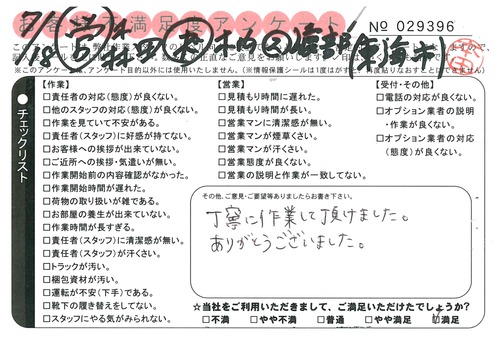 お客様不満足度アンケート
No 029396
チェックリスト
【作業】
□責任者の対応(態度)が良くない。
□他のスタッフの対応(態度)が良くない。
□作業を見ていて不安がある。
□責任者(スタッフ)に好感が持てない。
□お客様への挨拶が出来ていない。
□ご近所への挨拶・気遣いが無い。
□作業開始前の内容確認がなかった。
□作業開始時間が遅れた。
□荷物の取り扱いが雑である。
□お部屋の養生が出来ていない。
□作業時間が長すぎる。
□責任者(スタッフ)に清潔感が無い。
□責任者(スタッフ)が汗くさい。
□トラックが汚い。
□梱包資材が汚い。
□運転が不安(下手)である。
□靴下の履き替えをしてない。
□スタッフにやる気がみられない。
【営業】
□見積もり時間に遅れた。
□見積もり時間が長い。
□営業マンに清潔感が無い。
□営業マンが煙草くさい。
□営業マンが汗くさい。
□営業態度が良くない。
□営業の説明と作業が一致してない。
【受付・その他】
□電話の対応が良くない。
□オプション業者の説明
・作業が良くない。
□オプション業者の対応
(態度)が良くない。
その他、ご意見・ご要望等ありましたらお書き下さい。
丁寧に作業して頂けました。
ありがとうございました。
☆当社をご利用いただきまして、ご満足いただけたでしょうか?
□不満 □やや不満 □普通 □やや満足 ☑満足